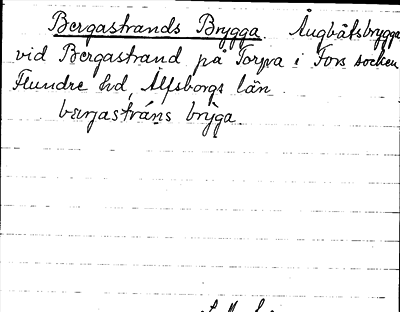 Bergastrands Brygga. Ångbåtsbrygga
vid Bergastrand på Torpa i Fors socken
Flundre hd, Älfsborgs län.
bærjastráns brỳga.